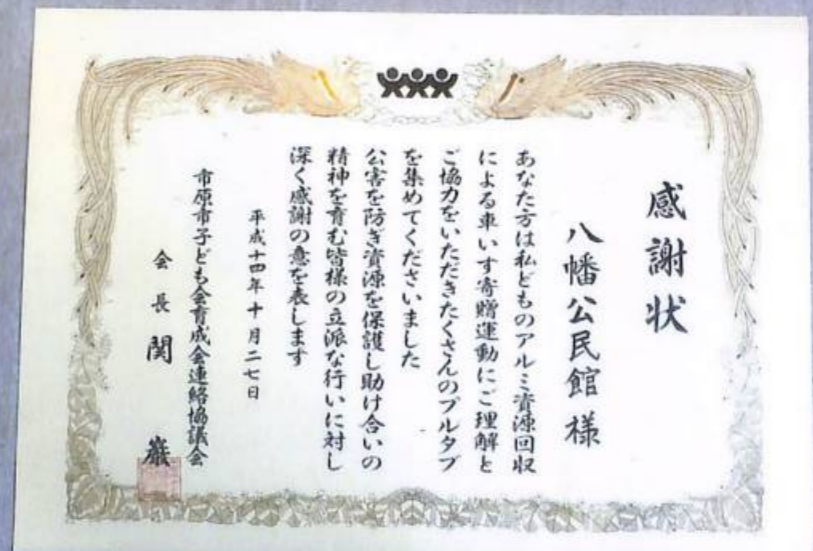 感謝状
八幡公民館 様
あなた方は私どものアルミ資源回収
による車いす寄贈運動にご理解と
ご協力をいただきたくさんのプルタブ
を集めてくださいました
公害を防ぎ資源を保護し助け合いの
精神を育む皆様の立派な行いに対し
深く感謝の意を表します
平成十四年十月二七日
市原市子ども会育成会連絡協議会
会長 関 巌